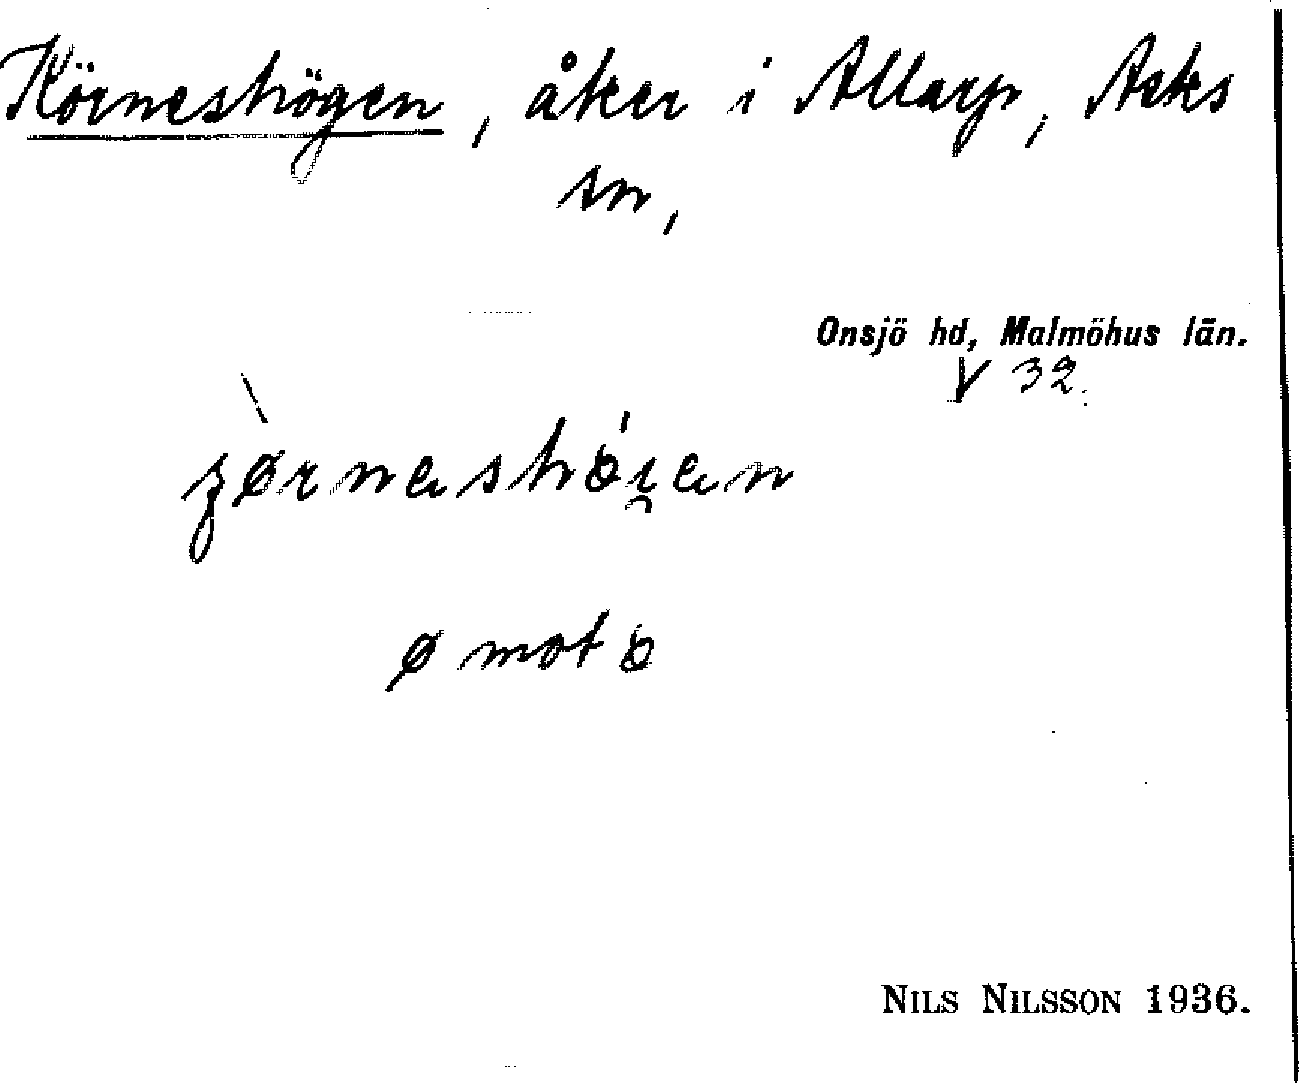 Körneshögen, åker i Allarp, Asks
sn,
Onsjö hd, Malmöhus län.
V 32.
ø mot
NILS NILSSON 1936.